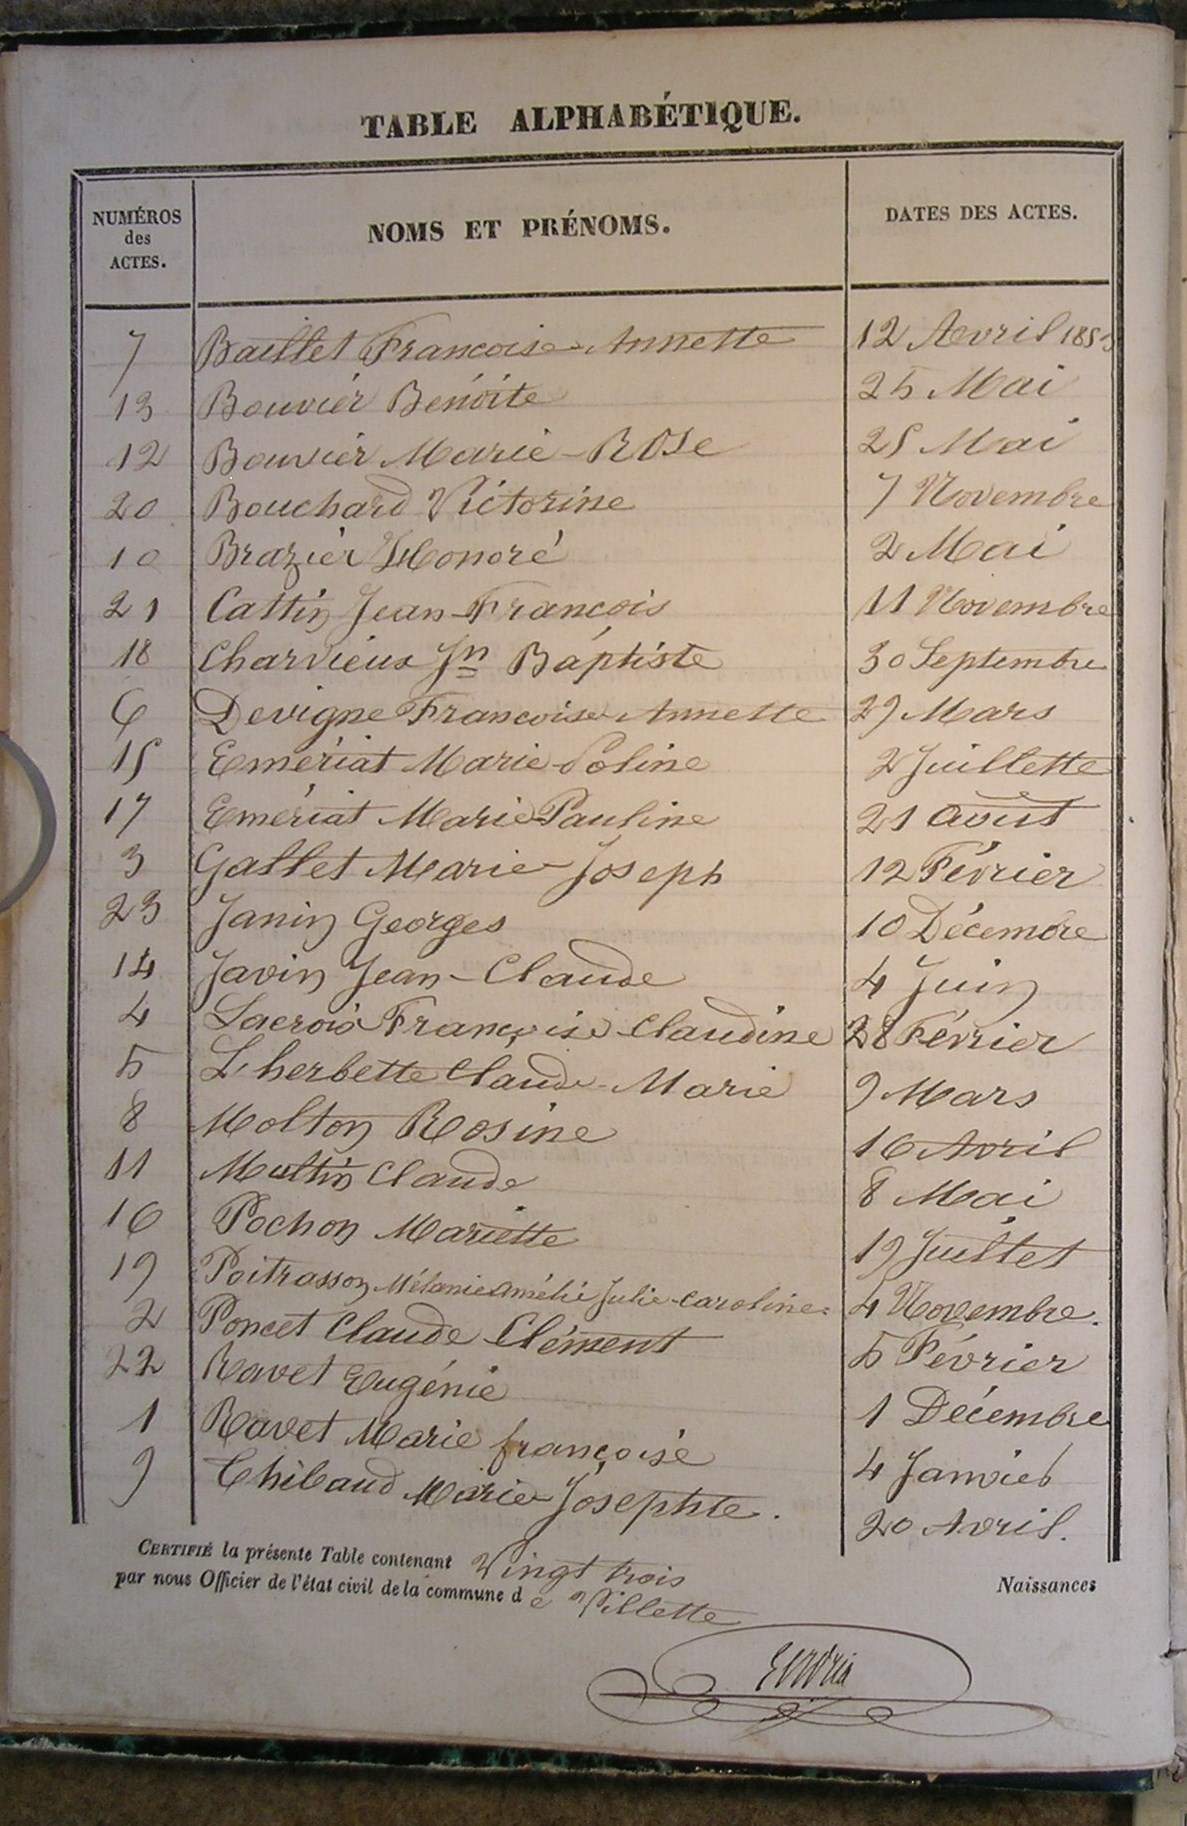 TABLE ALPHABÉTIQUE.
NUMÉROS des ACTES. NOMS ET PRÉNOMS. DATES DES ACTES.
7 Baillet Francoise-Annette 12 Avril 1853
13 Bouvier Benoite 25 Mai
12 Bouvier Marie-Rose 25 Mai
20 Bouchard Victorine 7 Novembre
10 Brazier Honoré 2 Mai
21 Cattin Jean-François 11 Novembre
18 Charvieux Jn Baptiste 30 Septembre
6 Devigne Francoise Annette 29 Mars
15 Emériat Marie Poline 2 Juillette
17 Emériat Marie Pauline 21 Août
3 Gallet Marie Joseph 12 Février
23 Janin Georges 10 Décembre
14 Javin Jean-Claude 4 Juin
4 Lacroix Françoise Claudine 28 Février
5 L'herbette Claude-Marie 9 Mars
8 Molton Rosine 16 Avril
11 Multin Claude 8 Mai
16 Pochon Mariette 19 Juillet
19 Poitrasson Mélanie Amélie Julie-Caroline. 4 Novembre.
2 Poncet Claude Clément 5 Février
22 Ravet Eugénie 1 Décembre
1 Ravet Marie françoise 4 Janvier
9 Thibaud Marie-Josephte. 20 Avril.
CERTIFIÉ la présente Table contenant Vingt trois Naissances
par nous Officier de l'état civil de la commune de Villette